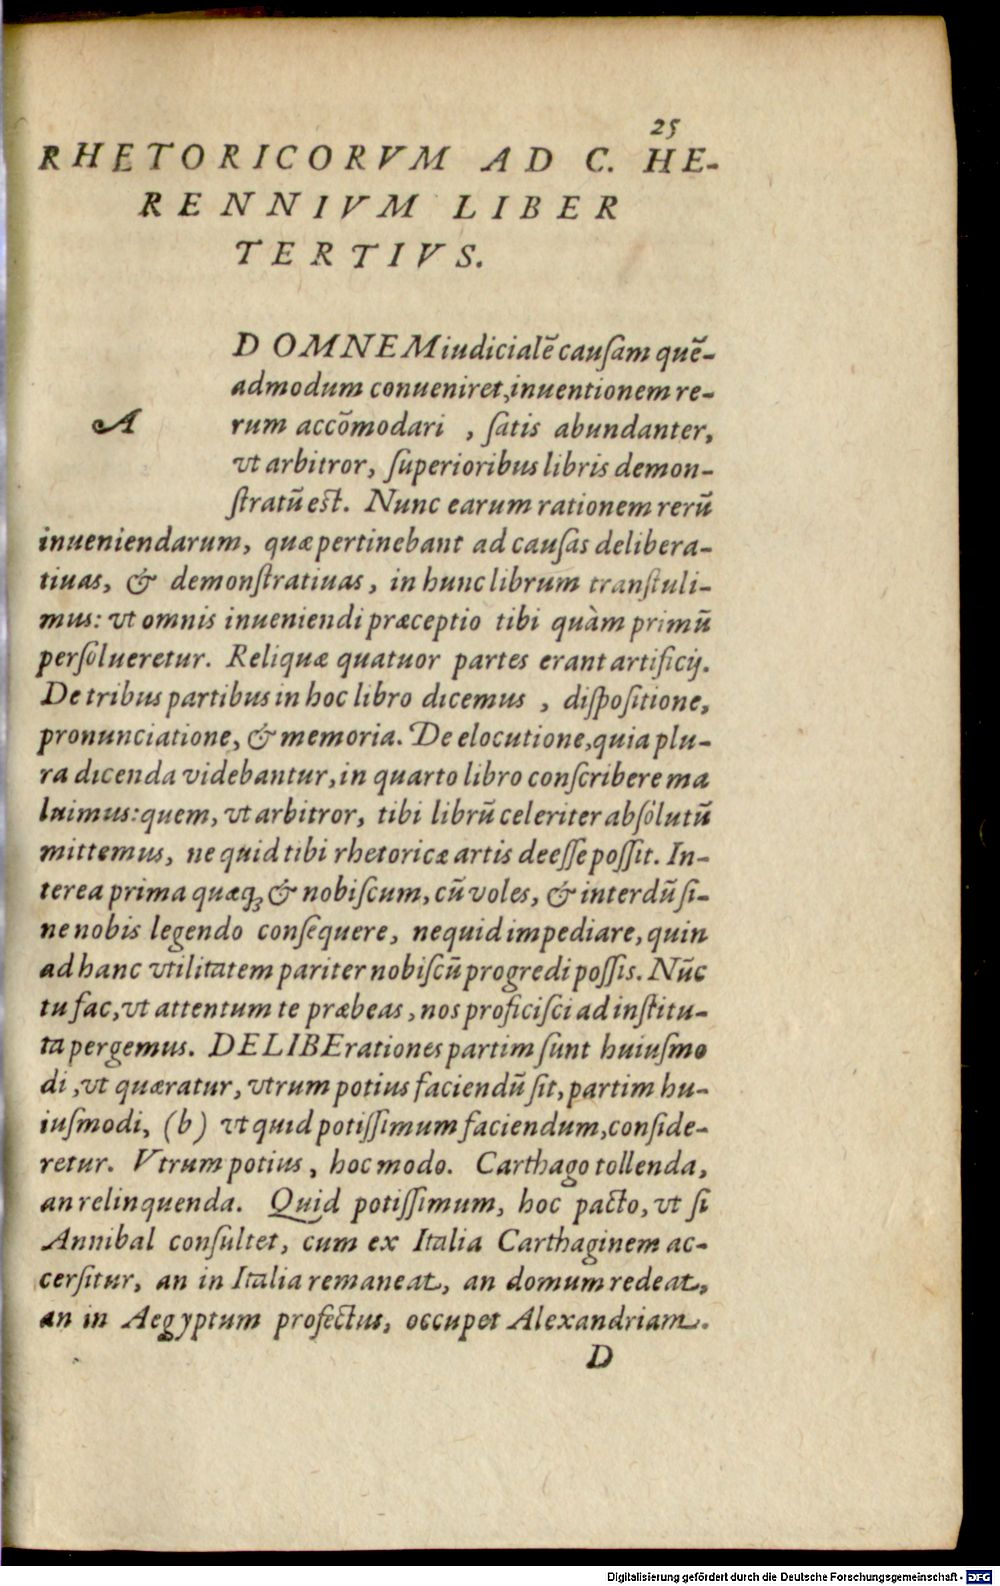 25
RHETORICORVM AD C. HE-
RENNIVM LIBER
TERTIVS.
A
D OMNEM iudicialē causam quē-
admodum conueniret, inuentionem re-
rum accōmodari, satis abundanter,
vt arbitror, superioribus libris demon-
stratū est. Nunc earum rationem rerū
inueniendarum, quæ pertinebant ad causas delibera-
tiuas, & demonstratiuas, in hunc librum transtuli-
mus: vt omnis inueniendi præceptio tibi quàm primū
persolueretur. Reliquæ quatuor partes erant artificij.
De tribus partibus in hoc libro dicemus, dispositione,
pronunciatione, & memoria. De elocutione, quia plu-
ra dicenda videbantur, in quarto libro conscribere ma
luimus: quem, vt arbitror, tibi librū celeriter absolutū
mittemus, ne quid tibi rhetoricæ artis deesse possit. In-
terea prima quæq; & nobiscum, cū voles, & interdū si-
ne nobis legendo consequere, nequid impediare, quin
ad hanc vtilitatem pariter nobiscū progredi possis. Nūc
tu fac, vt attentum te præbeas, nos proficisci ad institu-
ta pergemus. DELIBErationes partim sunt huiusmo
di, vt quæratur, vtrum potius faciendū sit, partim hu-
iusmodi, (b) vt quid potissimum faciendum, conside-
retur. Vtrum potius, hoc modo. Carthago tollenda,
an relinquenda. Quid potissimum, hoc pacto, vt si
Annibal consultet, cum ex Italia Carthaginem ac-
cersitur, an in Italia remaneat, an domum redeat,
an in Aegyptum profectus, occupet Alexandriam.
D
Digitalisierung gefördert durch die Deutsche Forschungsgemeinschaft - DFG